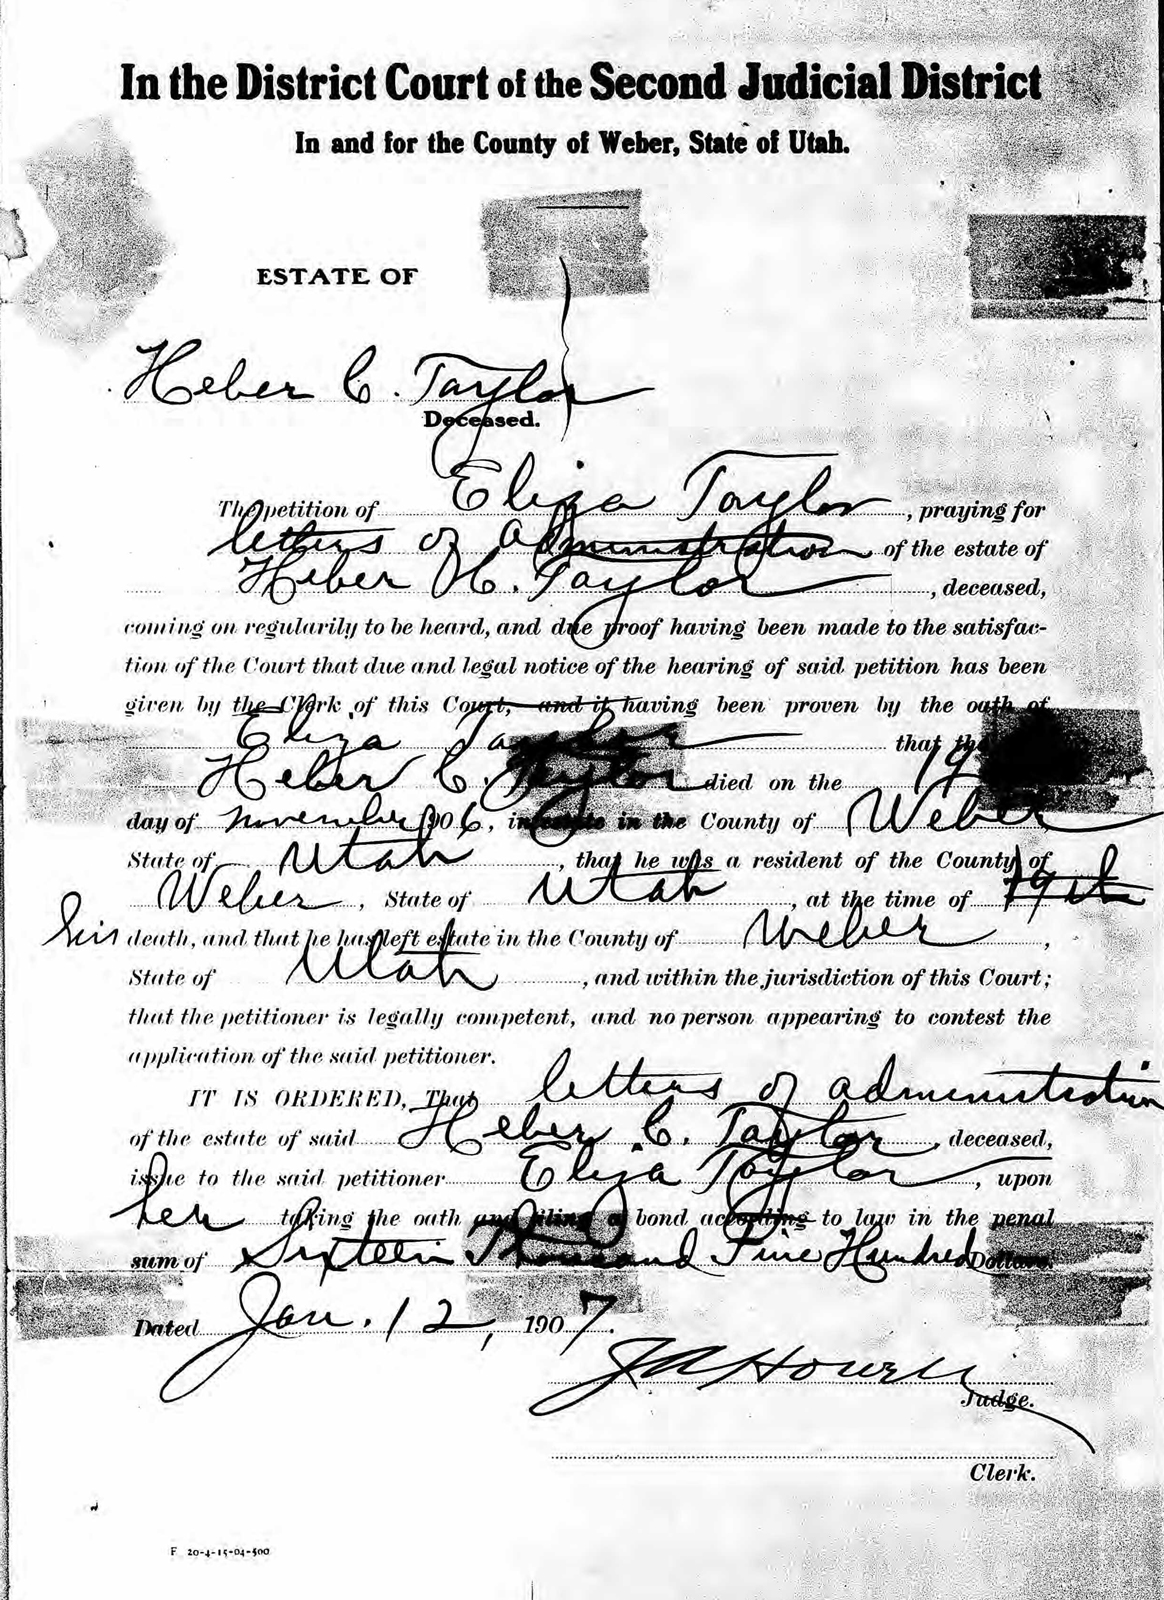 In the District Court of the Second Judicial District
In and for the County of Weber, State of Utah.
ESTATE OF
Heber C. Taylor
Deceased.
The petition of Eliza Taylor, praying for
letters of administration of the estate of
Heber H. Taylor, deceased,
coming on regularily to be heard, and due proof having been made to the satisfac-
tion of the Court that due and legal notice of the hearing of said petition has been
given by the Clerk of this Court, and it having been proven by the oath of
Eliza Taylor that the
Heber C. Taylor died on the 19
day of November 1906, intestate in the County of Weber
State of Utah, that he was a resident of the County of
Weber, State of Utah, at the time of
his death, and that he has left estate in the County of Weber,
State of Utah, and within the jurisdiction of this Court;
that the petitioner is legally competent, and no person appearing to contest the
application of the said petitioner.
IT IS ORDERED, That letters of administration
of the estate of said Heber C. Taylor, deceased,
issue to the said petitioner Eliza Taylor, upon
her taking the oath and filing a bond according to law in the penal
sum of Sixteen Thousand Five Hundred Dollars.
Dated Jan. 12, 1907.
J A Howell
Judge.
Clerk.
F 20-4-15-04-500